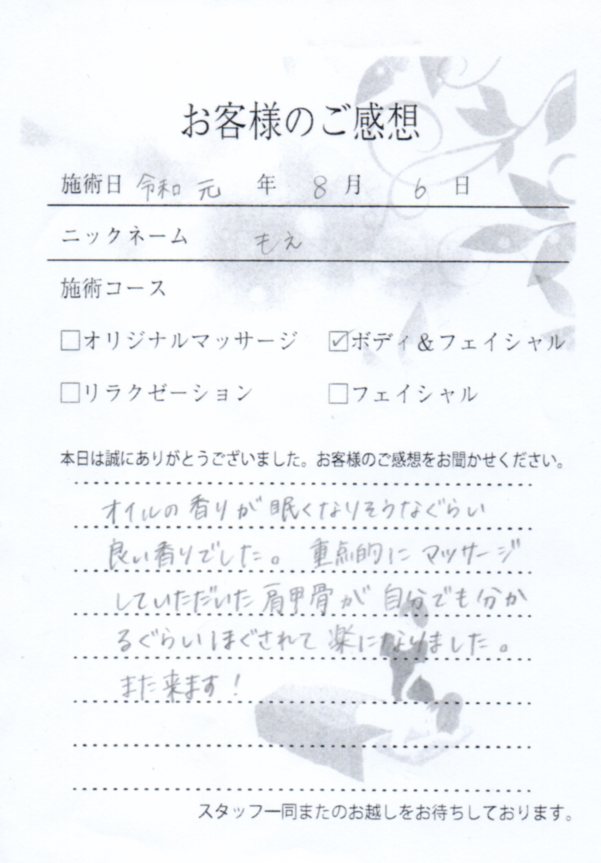 お客様のご感想
施術日 令和 元 年 8 月 6 日
ニックネーム もえ
施術コース
□オリジナルマッサージ ☑ボディ&フェイシャル
□リラクゼーション □フェイシャル
本日は誠にありがとうございました。お客様のご感想をお聞かせください。
オイルの香りが眠くなりそうなぐらい
良い香りでした。重点的にマッサージ
していただいた肩甲骨が自分でも分か
るぐらいほぐされて楽になりました。
また来ます!
スタッフ一同またのお越しをお待ちしております。